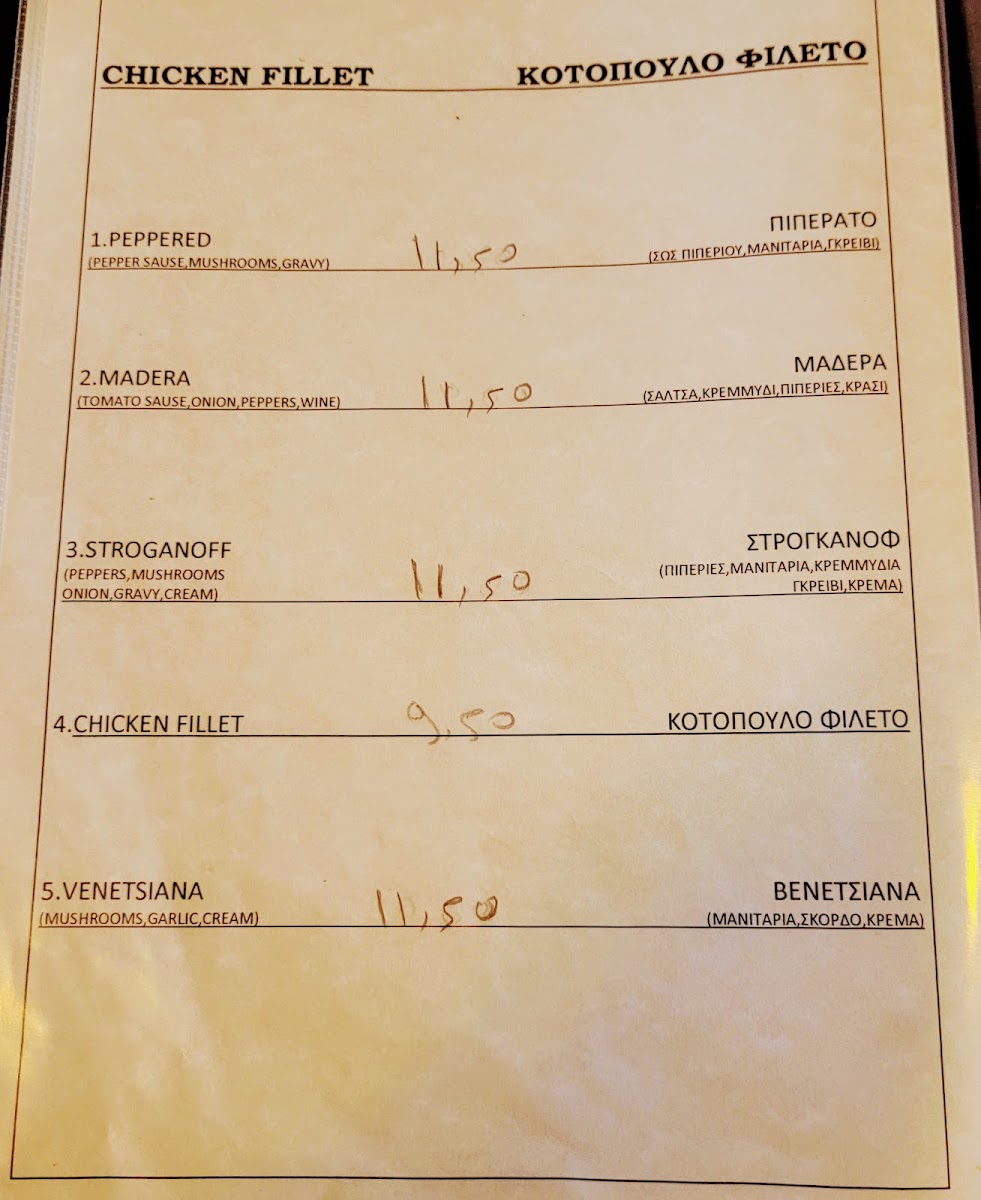 CHICKEN FILLET ΚΟΤΟΠΟΥΛΟ ΦΙΛΕΤΟ
1.PEPPERED 11,50 ΠΙΠΕΡΑΤΟ
(PEPPER SAUSE,MUSHROOMS,GRAVY) (ΣΩΣ ΠΙΠΕΡΙΟΥ,ΜΑΝΙΤΑΡΙΑ,ΓΚΡΕΙΒΙ)
2.MADERA 11,50 ΜΑΔΕΡΑ
(TOMATO SAUSE,ONION,PEPPERS,WINE) (ΣΑΛΤΣΑ,ΚΡΕΜΜΥΔΙ,ΠΙΠΕΡΙΕΣ,ΚΡΑΣΙ)
3.STROGANOFF 11,50 ΣΤΡΟΓΚΑΝΟΦ
(PEPPERS,MUSHROOMS (ΠΙΠΕΡΙΕΣ,ΜΑΝΙΤΑΡΙΑ,ΚΡΕΜΜΥΔΙΑ
ONION,GRAVY,CREAM) ΓΚΡΕΙΒΙ,ΚΡΕΜΑ)
4.CHICKEN FILLET 9,50 ΚΟΤΟΠΟΥΛΟ ΦΙΛΕΤΟ
5.VENETSIANA 11,50 ΒΕΝΕΤΣΙΑΝΑ
(MUSHROOMS,GARLIC,CREAM) (ΜΑΝΙΤΑΡΙΑ,ΣΚΟΡΔΟ,ΚΡΕΜΑ)